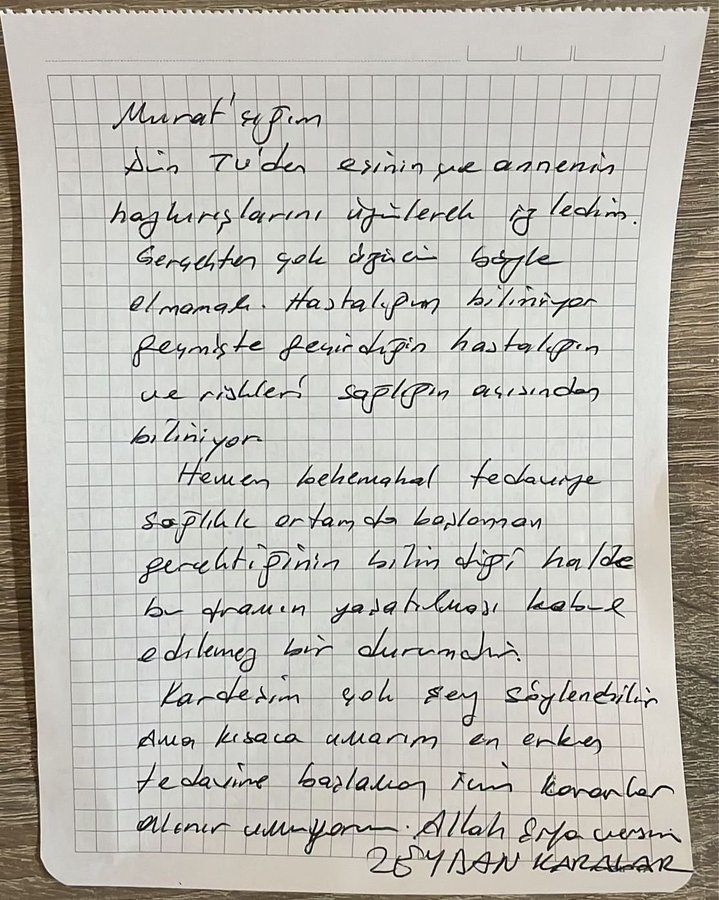 Murat'cığım
Dün TV'den eşinin ve annenin
haykırışlarını üzülerek izledim.
Gerçekten çok üzücü böyle
olmamalı. Hastalığın biliniyor
geçmişte geçirdiğin hastalığın
ve riskleri sağlığın açısından
biliniyor
Hemen behemahal tedaviye
sağlıklı ortamda başlaman
gerektiğinin bilindiği halde
bu dramın yaşatılması kabul
edilemez bir durumdur.
Kardeşim çok şey söylenebilir
Ama kısaca umarım en erken
tedavine başlaman için kararlar
alınır umuyorum. Allah Şifa versin
ZEYDAN KARALAR